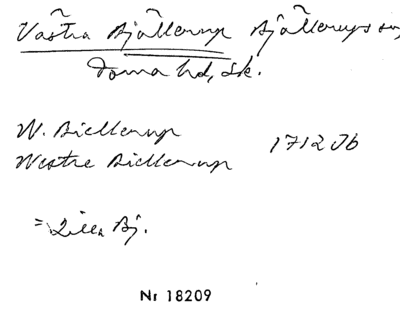 Västra Bjällerup Bjällerups sn,
Torna hd, Sk.
W. Biellerup
Westre Biellerup 1712 Jb
= Lilla Bj.
Nr 18209